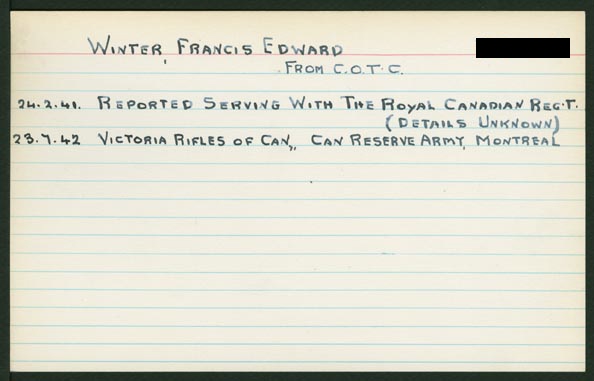 WINTER, FRANCIS EDWARD
FROM C.O.T.C.
24.2.41. REPORTED SERVING WITH THE ROYAL CANADIAN REG'T.
(DETAILS UNKNOWN)
23.7.42 VICTORIA RIFLES OF CAN., CAN RESERVE ARMY, MONTREAL